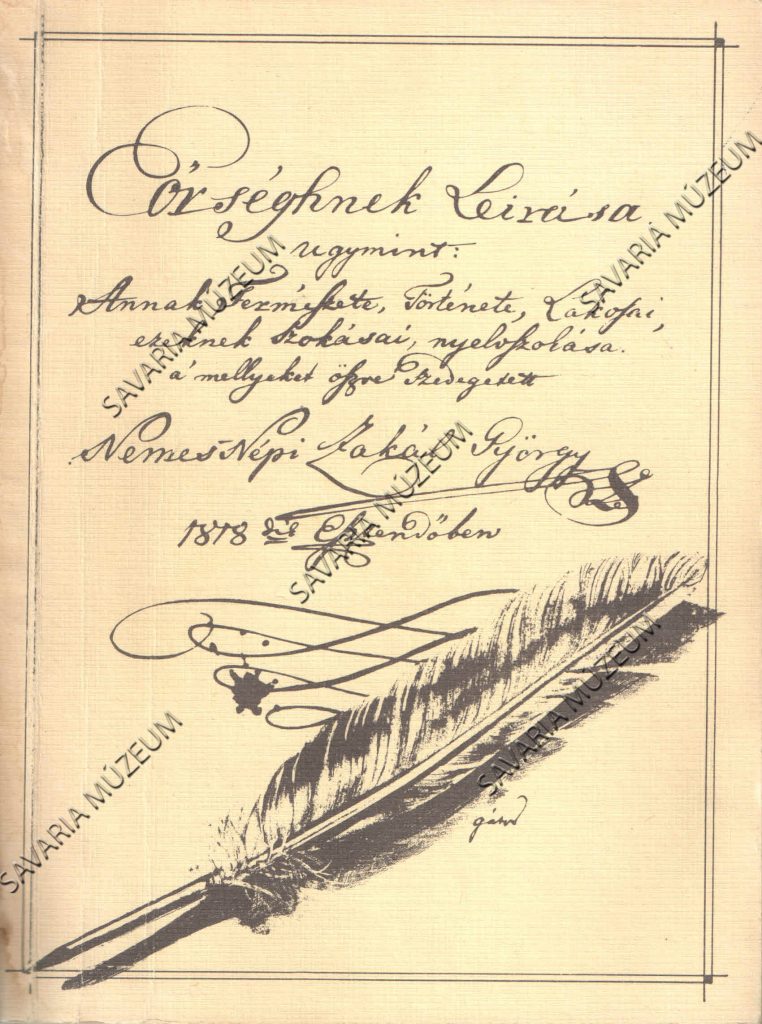 Őrséghnek Leirása
ugymint:
Annak Természete, Története, Lakossai,
ezeknek szokásai, nyelvszolása.
a' mellyeket öszve szedegetett
Nemes Népi Zakál György
1818dik Esztendőben
SAVARIA MÚZEUM
SAVARIA MÚZEUM
SAVARIA MÚZEUM
SAVARIA MÚZEUM
SAVARIA MÚZEUM
SAVARIA MÚZEUM